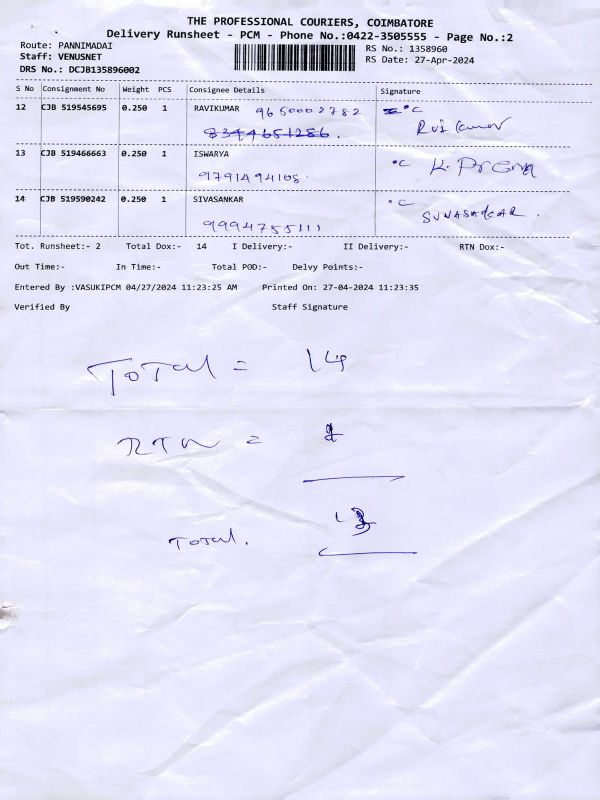 THE PROFESSIONAL COURIERS, COIMBATORE
Delivery Runsheet - PCM - Phone No.:0422-3505555 - Page No.:2
Route: PANNIMADAI RS No.: 1358960
Staff: VENUSNET RS Date: 27-Apr-2024
DRS No.: DCJB135896002
S No Consignment No Weight PCS Consignee Details Signature
12 CJB 519545695 0.250 1 RAVIKUMAR 9650002782
8344651286.
13 CJB 519466663 0.250 1 ISWARYA K. Prema
9791494108.
14 CJB 519590242 0.250 1 SIVASANKAR
9994755111
Tot. Runsheet:- 2 Total Dox:- 14 I Delivery:- II Delivery:- RTN Dox:-
Out Time:- In Time:- Total POD:- Delvy Points:-
Entered By :VASUKIPCM 04/27/2024 11:23:25 AM Printed On: 27-04-2024 11:23:35
Verified By Staff Signature
Total = 14
RTN =
Total.